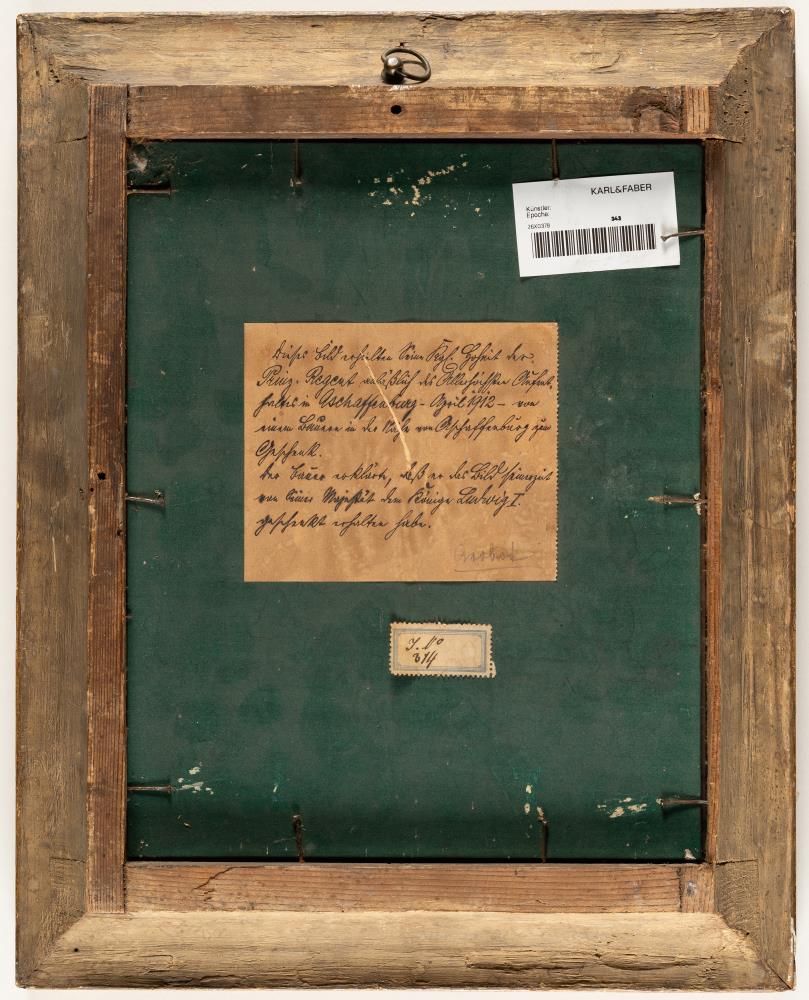 KARL&FABER
Künstler:
Epoche:
343
Dieses Bild erhielten Seine Kgl. Hoheit der
Prinz-Regent anläßlich des Allerhöchsten Aufent-
haltes in Aschaffenburg - April 1912 - von
einem Bauern in der Nähe von Aschaffenburg zum
Geschenk.
Der Bauer erklärte, daß er das Bild seinerzeit
von Seiner Majestät dem Könige Ludwig I.
geschenkt erhalten habe.
J. No
314